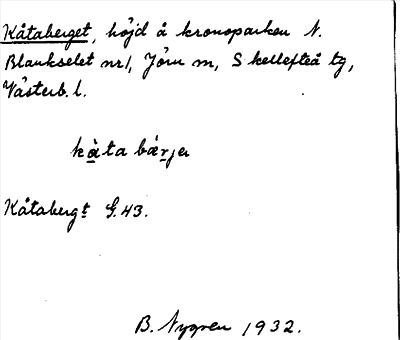 Kåtaberget, höjd å kronoparken N.
Blankselet nr 1, Jörn sn, Skellefteå tg,
Västerb. l.
kå̀ta bä́rjer
Kåtabergt G.43.
B. Nygren 1932.